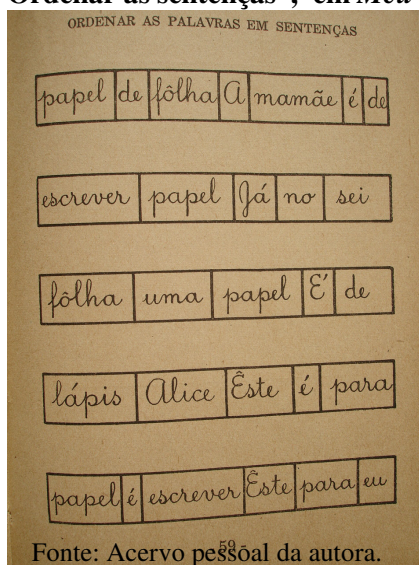 Ordenar as sentenças", em Meu
ORDENAR AS PALAVRAS EM SENTENÇAS
papel de fôlha A mamãe é de
escrever papel Já no sei
fôlha uma papel E' de
lápis Alice Êste é para
papel é escrever Êste para eu
59 -
Fonte: Acervo pessoal da autora.